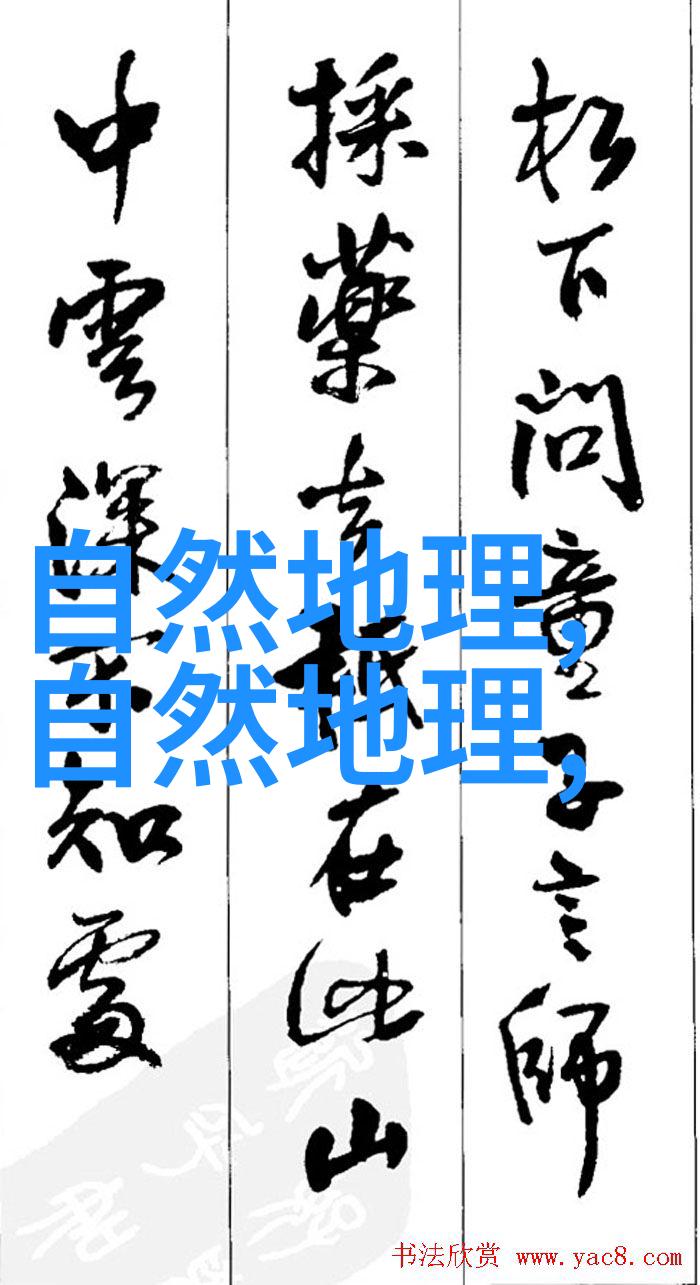 松下問童子言師
採藥去在此山
中雲深不知處
自然地理,
自然地理,
书法欣赏 www.yac8.com